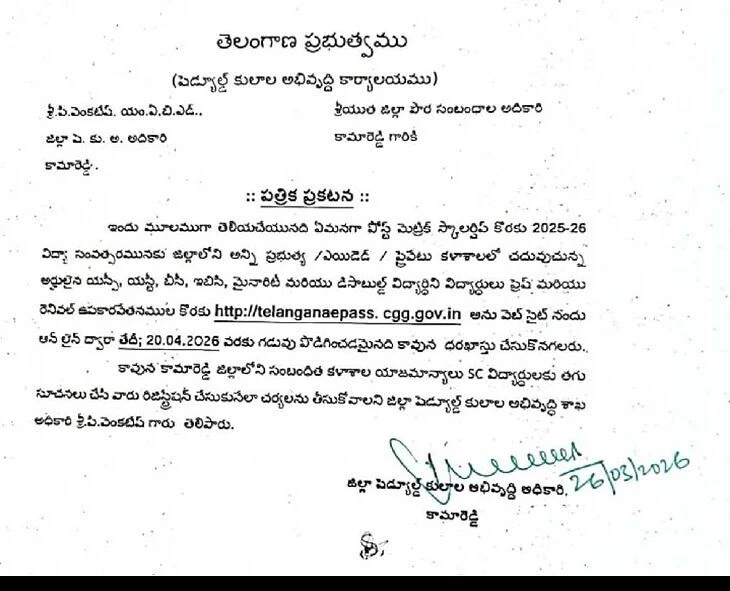 తెలంగాణ ప్రభుత్వము
(షెడ్యూల్డ్ కులాల అభివృద్ధి కార్యాలయము)
శ్రీ.పి.వెంకటేష్. యం.ఏ.బి.ఎడ్.,
శ్రీయుత జిల్లా పౌర సంబంధాల అధికారి
జిల్లా షె. కు. అ. అధికారి
కామారెడ్డి గారికి
కామారెడ్డి.
:: పత్రిక ప్రకటన ::
ఇందు మూలముగా తెలియచేయునది ఏమనగా పోస్ట్ మెట్రిక్ స్కాలర్షిప్ కొరకు 2025-26
విద్యా సంవత్సరమునకు జిల్లాలోని అన్ని ప్రభుత్వ /ఎయిడెడ్ / ప్రైవేటు కళాశాలలో చదువుచున్న
అర్హులైన యస్సీ, యస్టీ, బీసీ, ఇబిసి, మైనారిటీ మరియు డిసాబుల్డ్ విద్యార్థిని విద్యార్థులు ఫ్రెష్ మరియు
రెనివల్ ఉపకారవేతనముల కొరకు http://telanganaepass. cgg.gov.in అను వెబ్ సైట్ నందు
ఆన్ లైన్ ద్వారా తేదీ; 20.04.2026 వరకు గడువు పొడిగించడమైనది కావున దరఖాస్తు చేసుకొనగలరు.
కావున కామారెడ్డి జిల్లాలోని సంబంధిత కళాశాల యాజమాన్యాలు SC విద్యార్థులకు తగు
సూచనలు చేసి వారు రిజిస్ట్రేషన్ చేసుకునేలా చర్యలను తీసుకోవాలని జిల్లా షెడ్యూల్డ్ కులాల అభివృద్ధి శాఖ
అధికారి శ్రీ.పి.వెంకటేష్ గారు తెలిపారు.
26/03/2026
జిల్లా షెడ్యూల్డ్ కులాల అభివృద్ధి అధికారి,
కామారెడ్డి